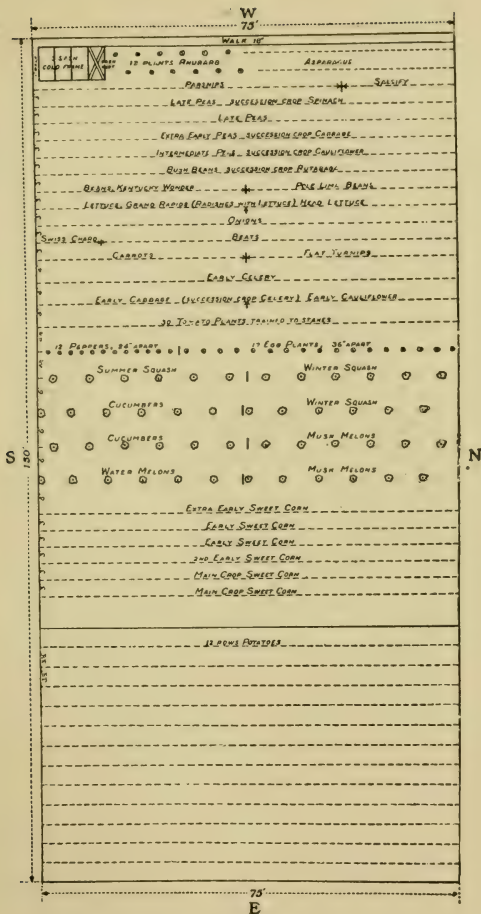 W
75'
WALK 18"
3 SASH
COLD FRAME
12 PLANTS RHUBARB
ASPARAGUS
PARSNIPS
SALSIFY
LATE PEAS SUCCESSION CROP SPINACH
LATE PEAS
EXTRA EARLY PEAS SUCCESSION CROP CABBAGE
INTERMEDIATE PEAS SUCCESSION CROP CAULIFLOWER
BUSH BEANS SUCCESSION CROP RUTABAGA
BEANS, KENTUCKY WONDER
POLE LIMA BEANS
LETTUCE, GRAND RAPIDS (RADISHES WITH LETTUCE) HEAD LETTUCE
ONIONS
SWISS CHARD
BEETS
CARROTS
FLAT TURNIPS
EARLY CELERY
EARLY CABBAGE (SUCCESSION CROP CELERY) EARLY CAULIFLOWER
30 TOMATO PLANTS TRAINED TO STAKES
12 PEPPERS, 24" APART
17 EGG PLANTS, 36" APART
SUMMER SQUASH
WINTER SQUASH
CUCUMBERS
WINTER SQUASH
CUCUMBERS
MUSK MELONS
S
150'
N
WATER MELONS
MUSK MELONS
EXTRA EARLY SWEET CORN
EARLY SWEET CORN
EARLY SWEET CORN
2ND EARLY SWEET CORN
MAIN CROP SWEET CORN
MAIN CROP SWEET CORN
12 ROWS POTATOES
75'
E